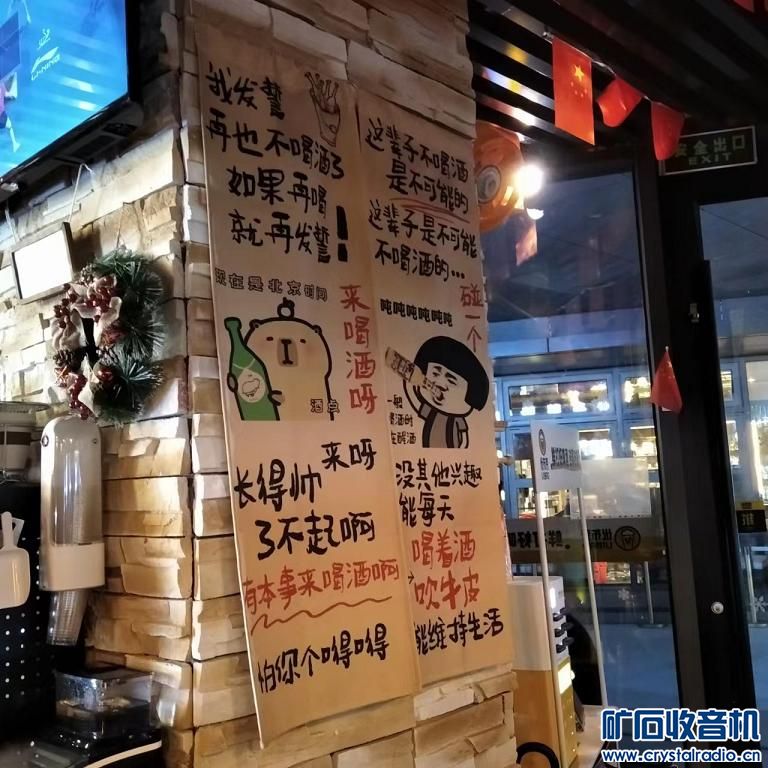 LI-NING
我发誓
再也不喝酒了
如果再喝
就再发誓!
现在是北京时间
酒点
来喝酒呀
来呀
长得帅
了不起啊
有本事来喝酒啊
怕你个嘚嘚
这辈子不喝酒
是不可能的
这辈子是不可能
不喝酒的...
碰一个
吨吨吨吨吨吨
没其他兴趣
能每天
喝着酒
吹牛皮
能维持生活
安全出口
EXIT
矿石收音机
www.crystalradio.cn